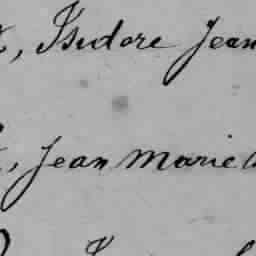 , Isidore Jean
, Jean Marie